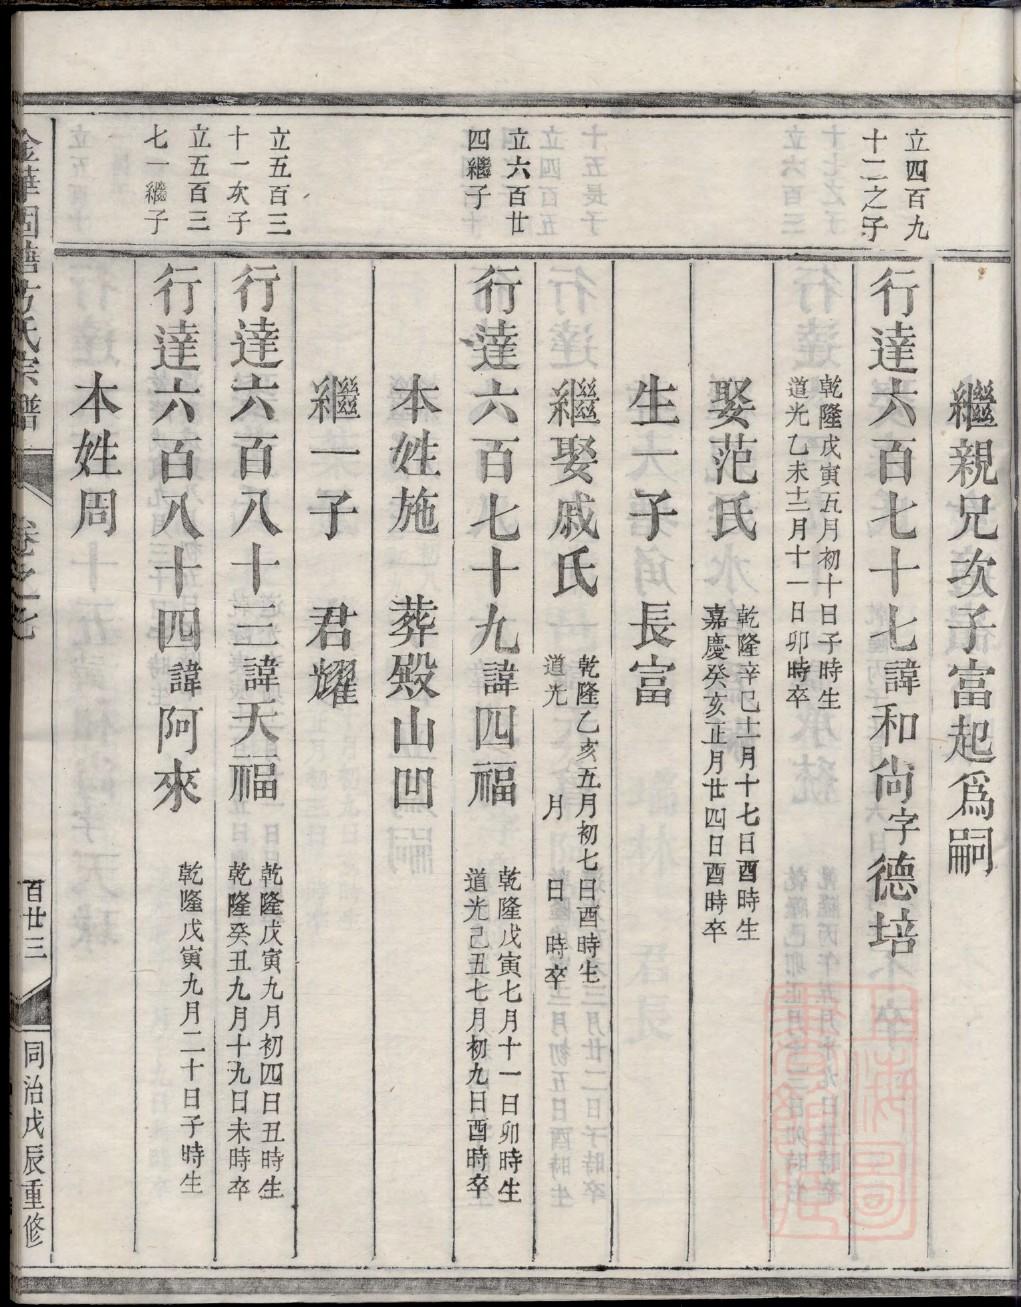 繼親兄次子富起爲嗣
立四百九
十二之子
行達六百七十七諱和尙字德培
乾隆戊寅五月初十日子時生
道光乙未十二月十一日卯時卒
娶范氏
乾隆辛巳十一月十七日酉時生
嘉慶癸亥正月廿四日酉時卒
生一子 長富
繼娶戚氏
乾隆乙亥五月初七日酉時生
道光 月 日 時卒
立六百廿
四繼子
行達六百七十九諱四福
乾隆戊寅七月十一日卯時生
道光己丑七月初九日酉時卒
本姓施 葬殿山凹
繼一子 君耀
立五百三
十一次子
行達六百八十三諱天福
乾隆戊寅九月初四日丑時生
乾隆癸丑九月十九日未時卒
立五百三
七一繼子
行達六百八十四諱阿來
乾隆戊寅九月二十日子時生
本姓周
方氏宗譜
卷之七
百廿三
同治戊辰重修